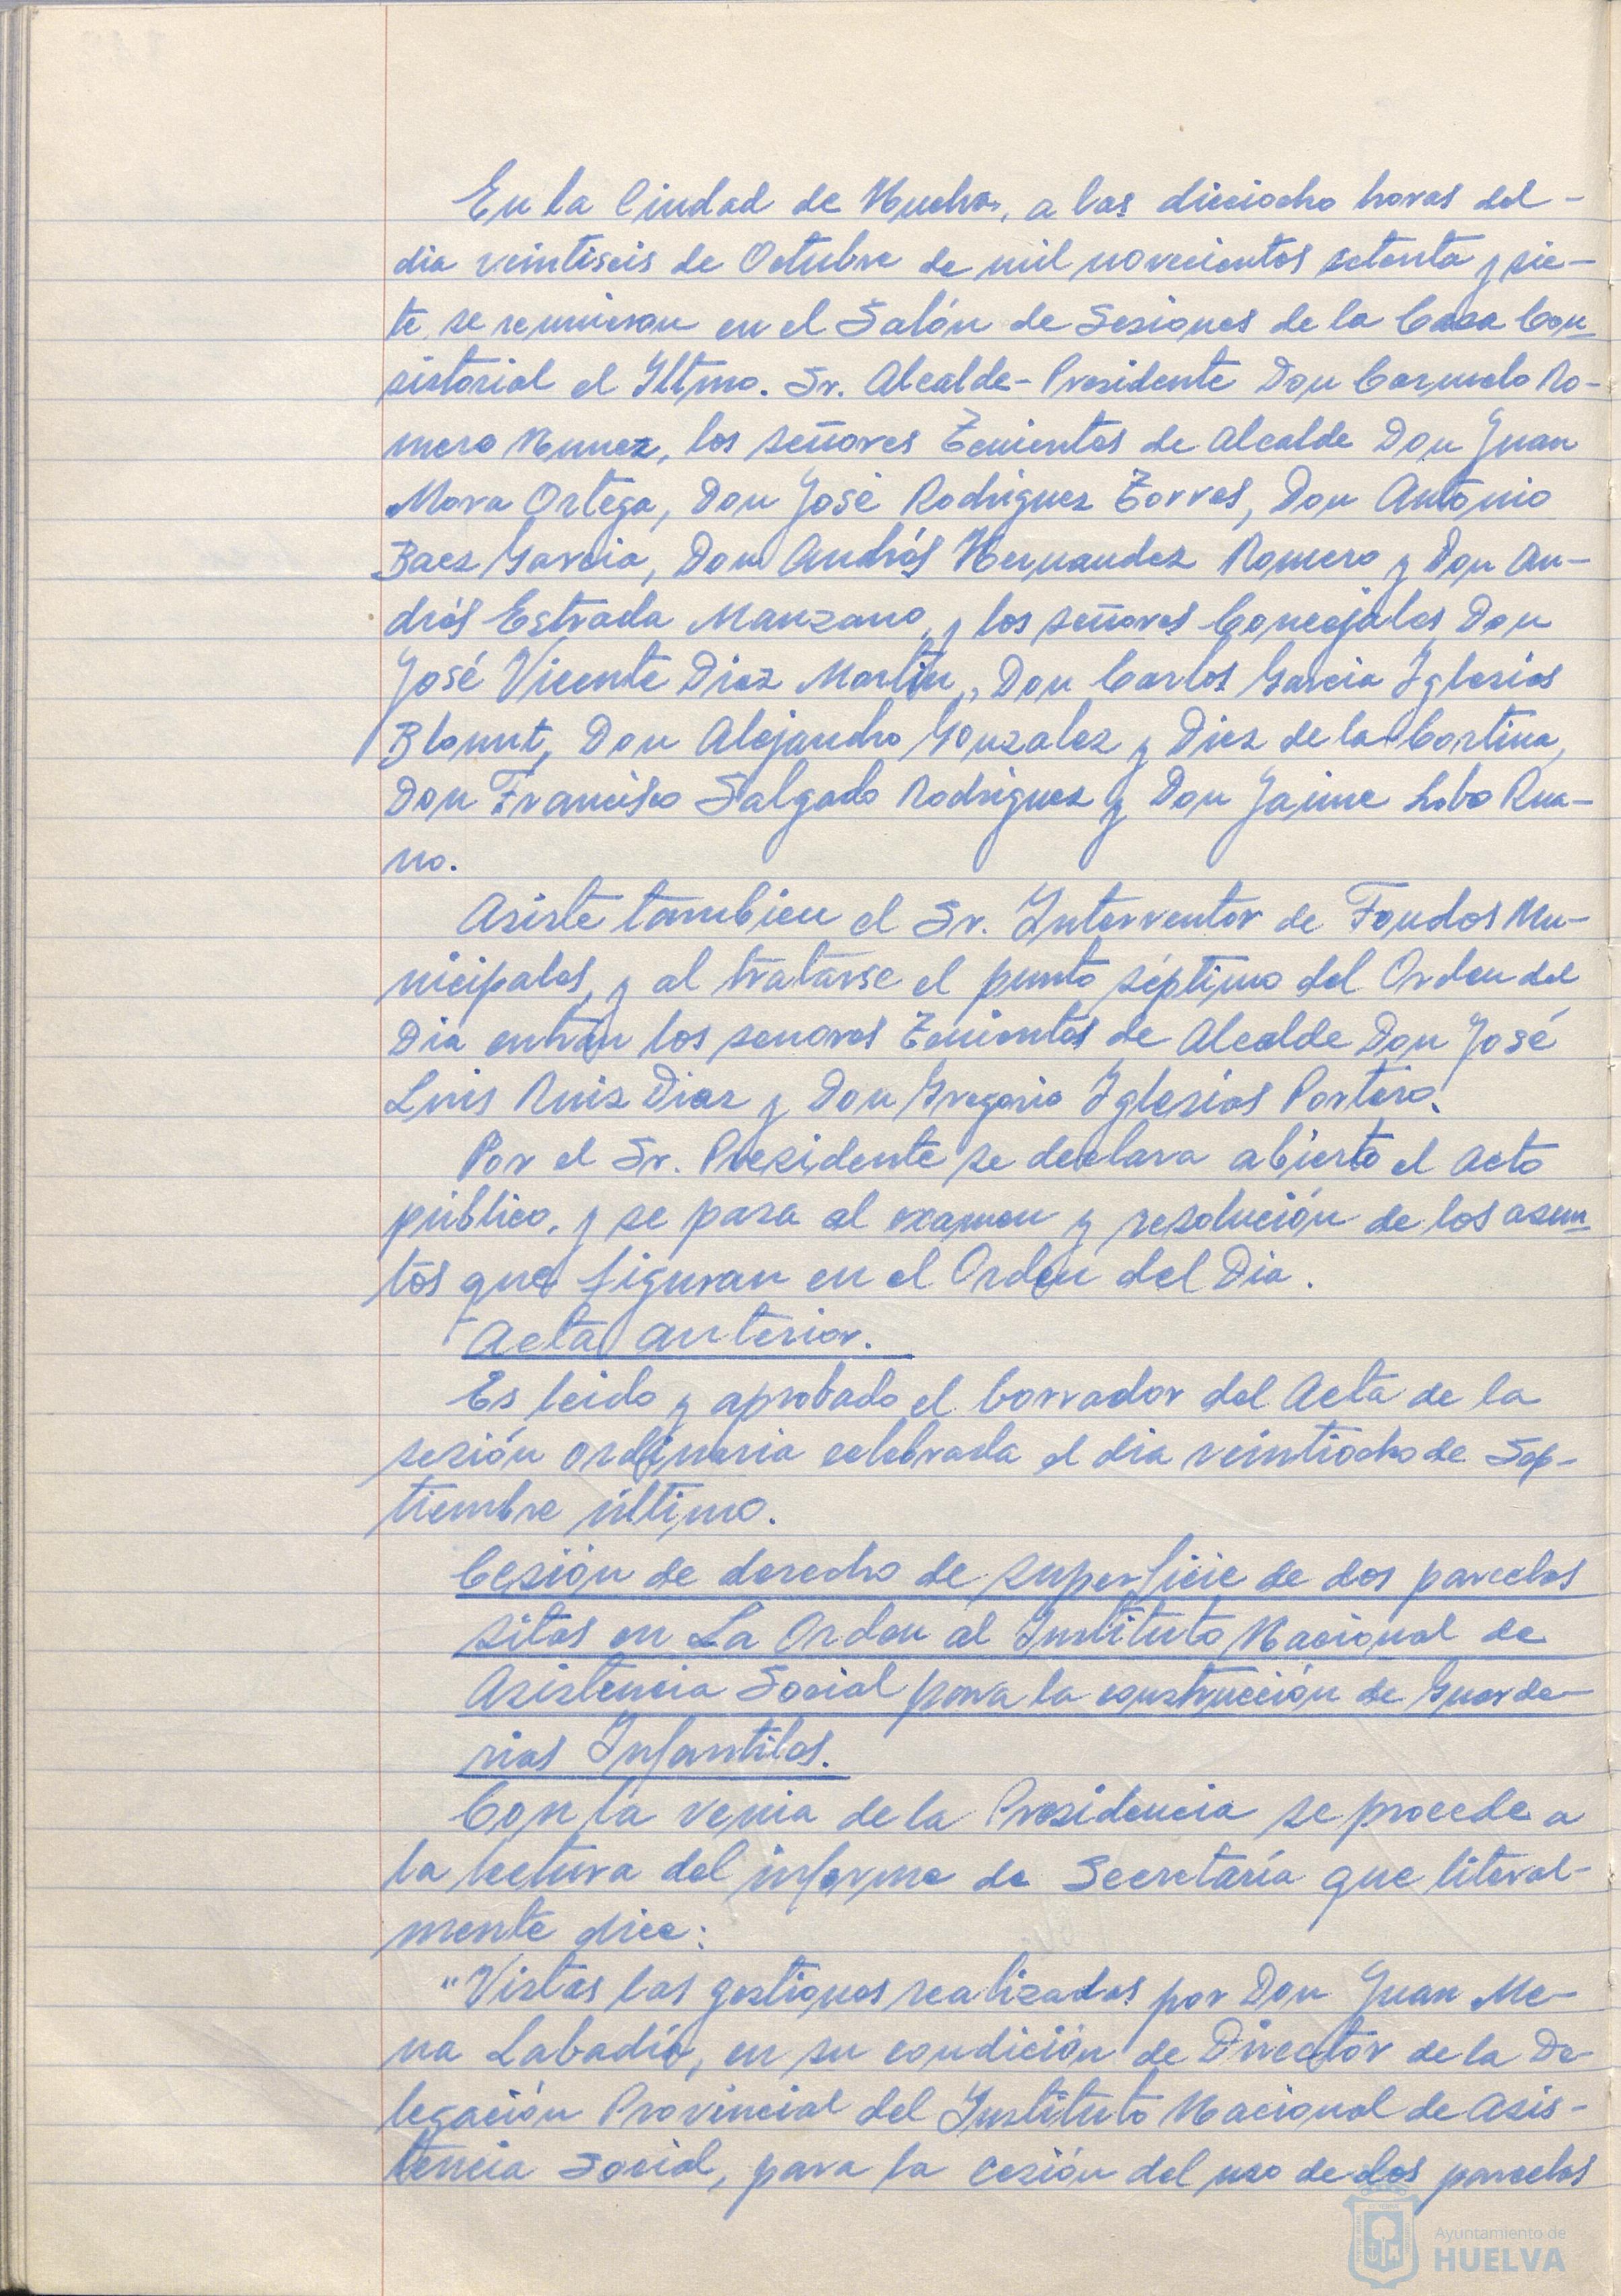 En la Ciudad de Huelva, a las dieciocho horas del -
dia veintiseis de Octubre de mil novecientos setenta y sie-
te, se reunieron en el Salón de Sesiones de la Casa Con-
sistorial el Iltmo. Sr. Alcalde-Presidente Don Carmelo Ro-
mero Nunez, los señores Tenientes de Alcalde Don Juan
Mora Ortega, Don José Rodriguez Torres, Don Antonio
Baez Garcia, Don Andrés Hernandez Romero y Don An-
drés Estrada Manzano, y los señores Concejales Don
José Vicente Diaz Martin, Don Carlos Garcia Iglesias
Blount, Don Alejandro Gonzalez y Diez de la Cortina,
Don Francisco Salgado Rodriguez y Don Jaime Lobo Rua-
no.
Asiste tambien el Sr. Interventor de Fondos Mu-
nicipales, y al tratarse el punto séptimo del Orden del
Dia entran los senores Tenientes de Alcalde Don José
Luis Ruiz Diaz y Don Gregorio Iglesias Portero.
Por el Sr. Presidente se declara abierto el acto
público, y se pasa al examen y resolución de los asun-
tos que figuran en el Orden del Dia.
Acta anterior.
Es leido y aprobado el borrador del Acta de la
sesión ordinaria celebrada el dia veintiocho de Sep-
tiembre último.
Cesión de derecho de superficie de dos parcelas
sitas en La Orden al Instituto Nacional de
Asistencia Social para la construcción de Guarde-
rias Infantiles.
Con la venia de la Presidencia se procede a
la lectura del informe de Secretaría que literal-
mente dice:
"Vistas las gestiones realizadas por Don Juan Me-
na Labadía, en su condición de Director de la De-
legación Provincial del Instituto Nacional de Asis-
tencia Social, para la cesión del uso de dos parcelas
Ayuntamiento de
HUELVA